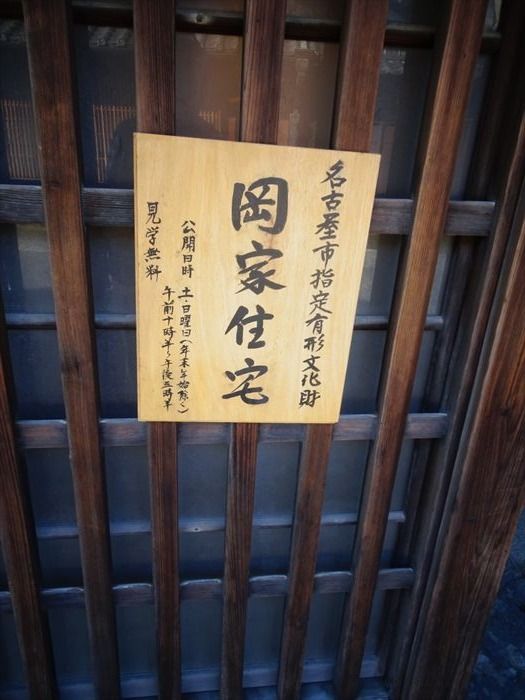 名古屋市指定有形文化財
岡家住宅
公開日時 土・日曜日(年末年始除く)
午前十時半～午後三時半
見学無料